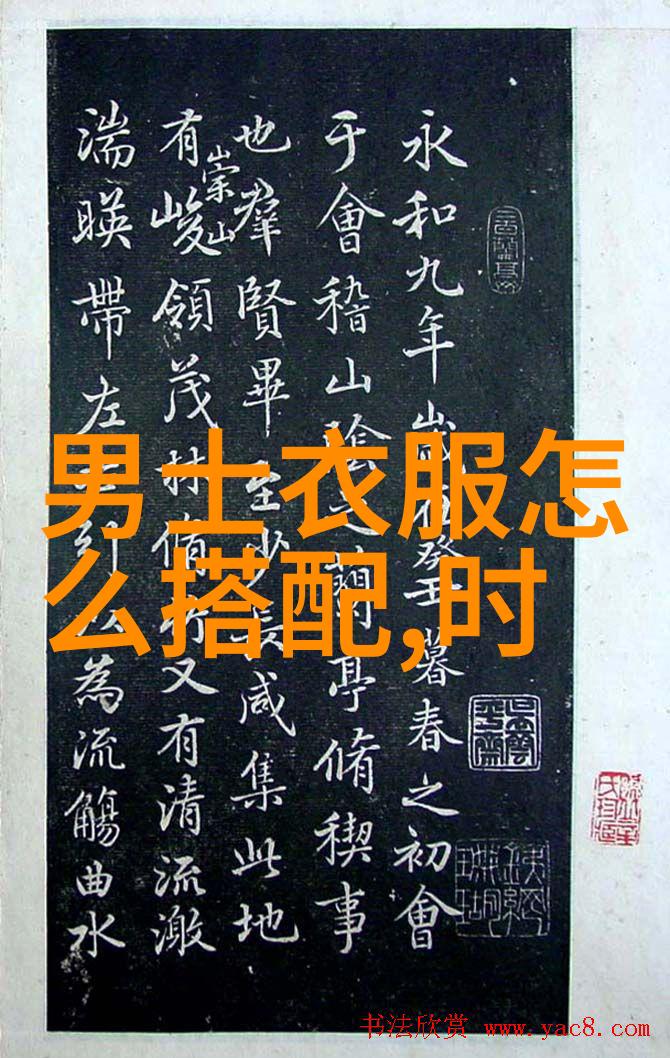 永和九年歲在癸丑暮春之初會
于會稽山陰之蘭亭脩稧事
也羣賢畢至少長咸集此地
有崇山峻領茂林脩竹又有清流激
湍暎帶左引以為流觴曲水
男士衣服怎
么搭配,时
书法欣赏 www.yac8.com